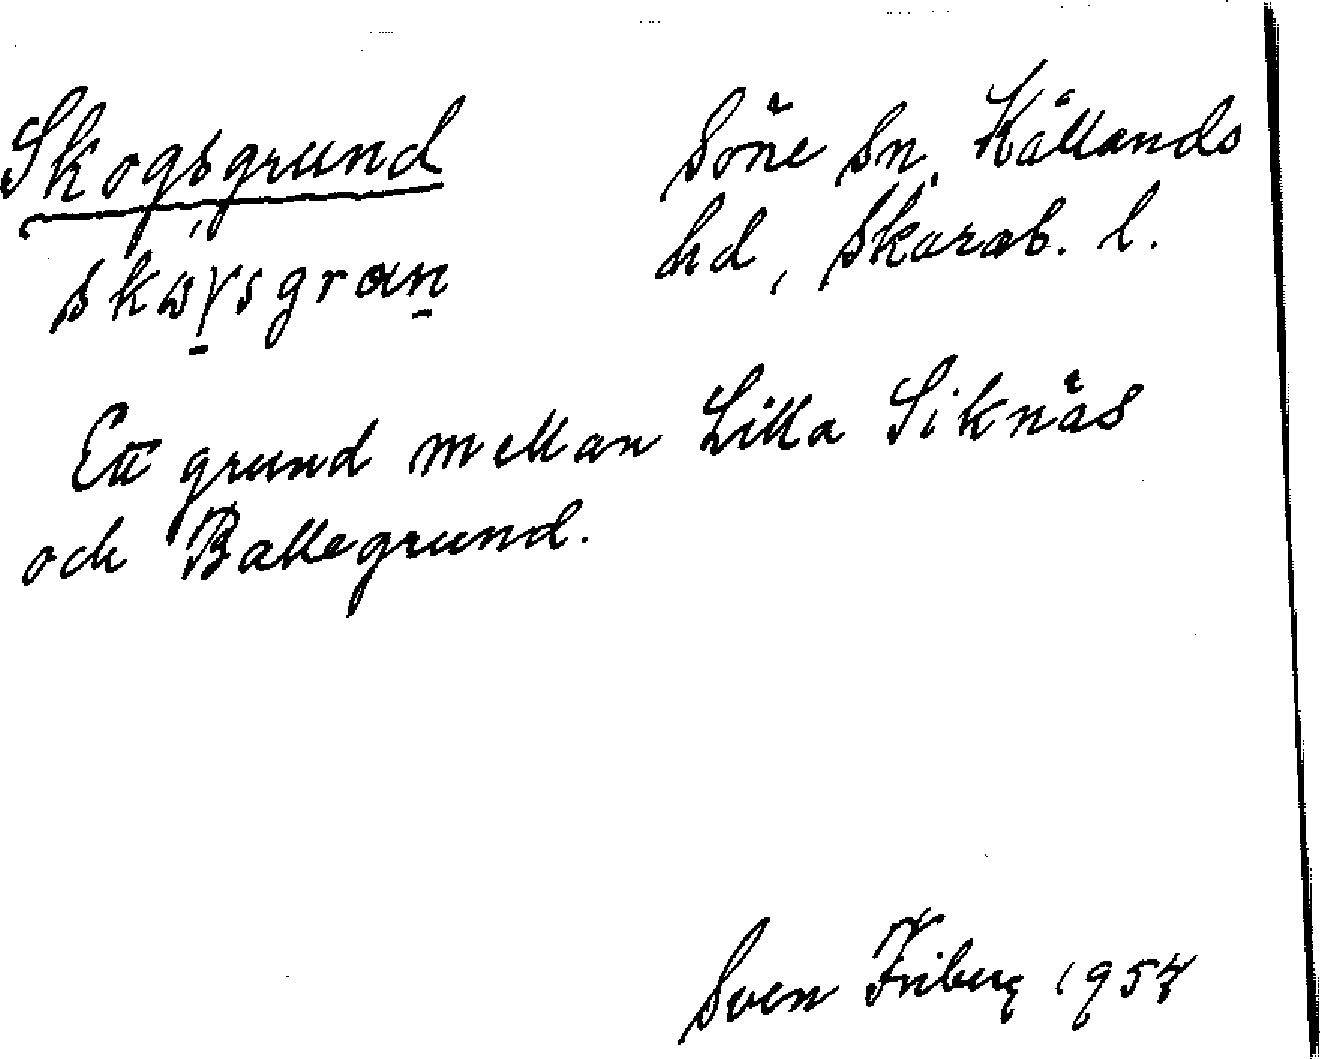 Skogsgrund
Söne sn, Kållands
hd, Skarab. l.
Ett grund mellan Lilla Siknäs
och Ballegrund.
Sven Friberg 1954